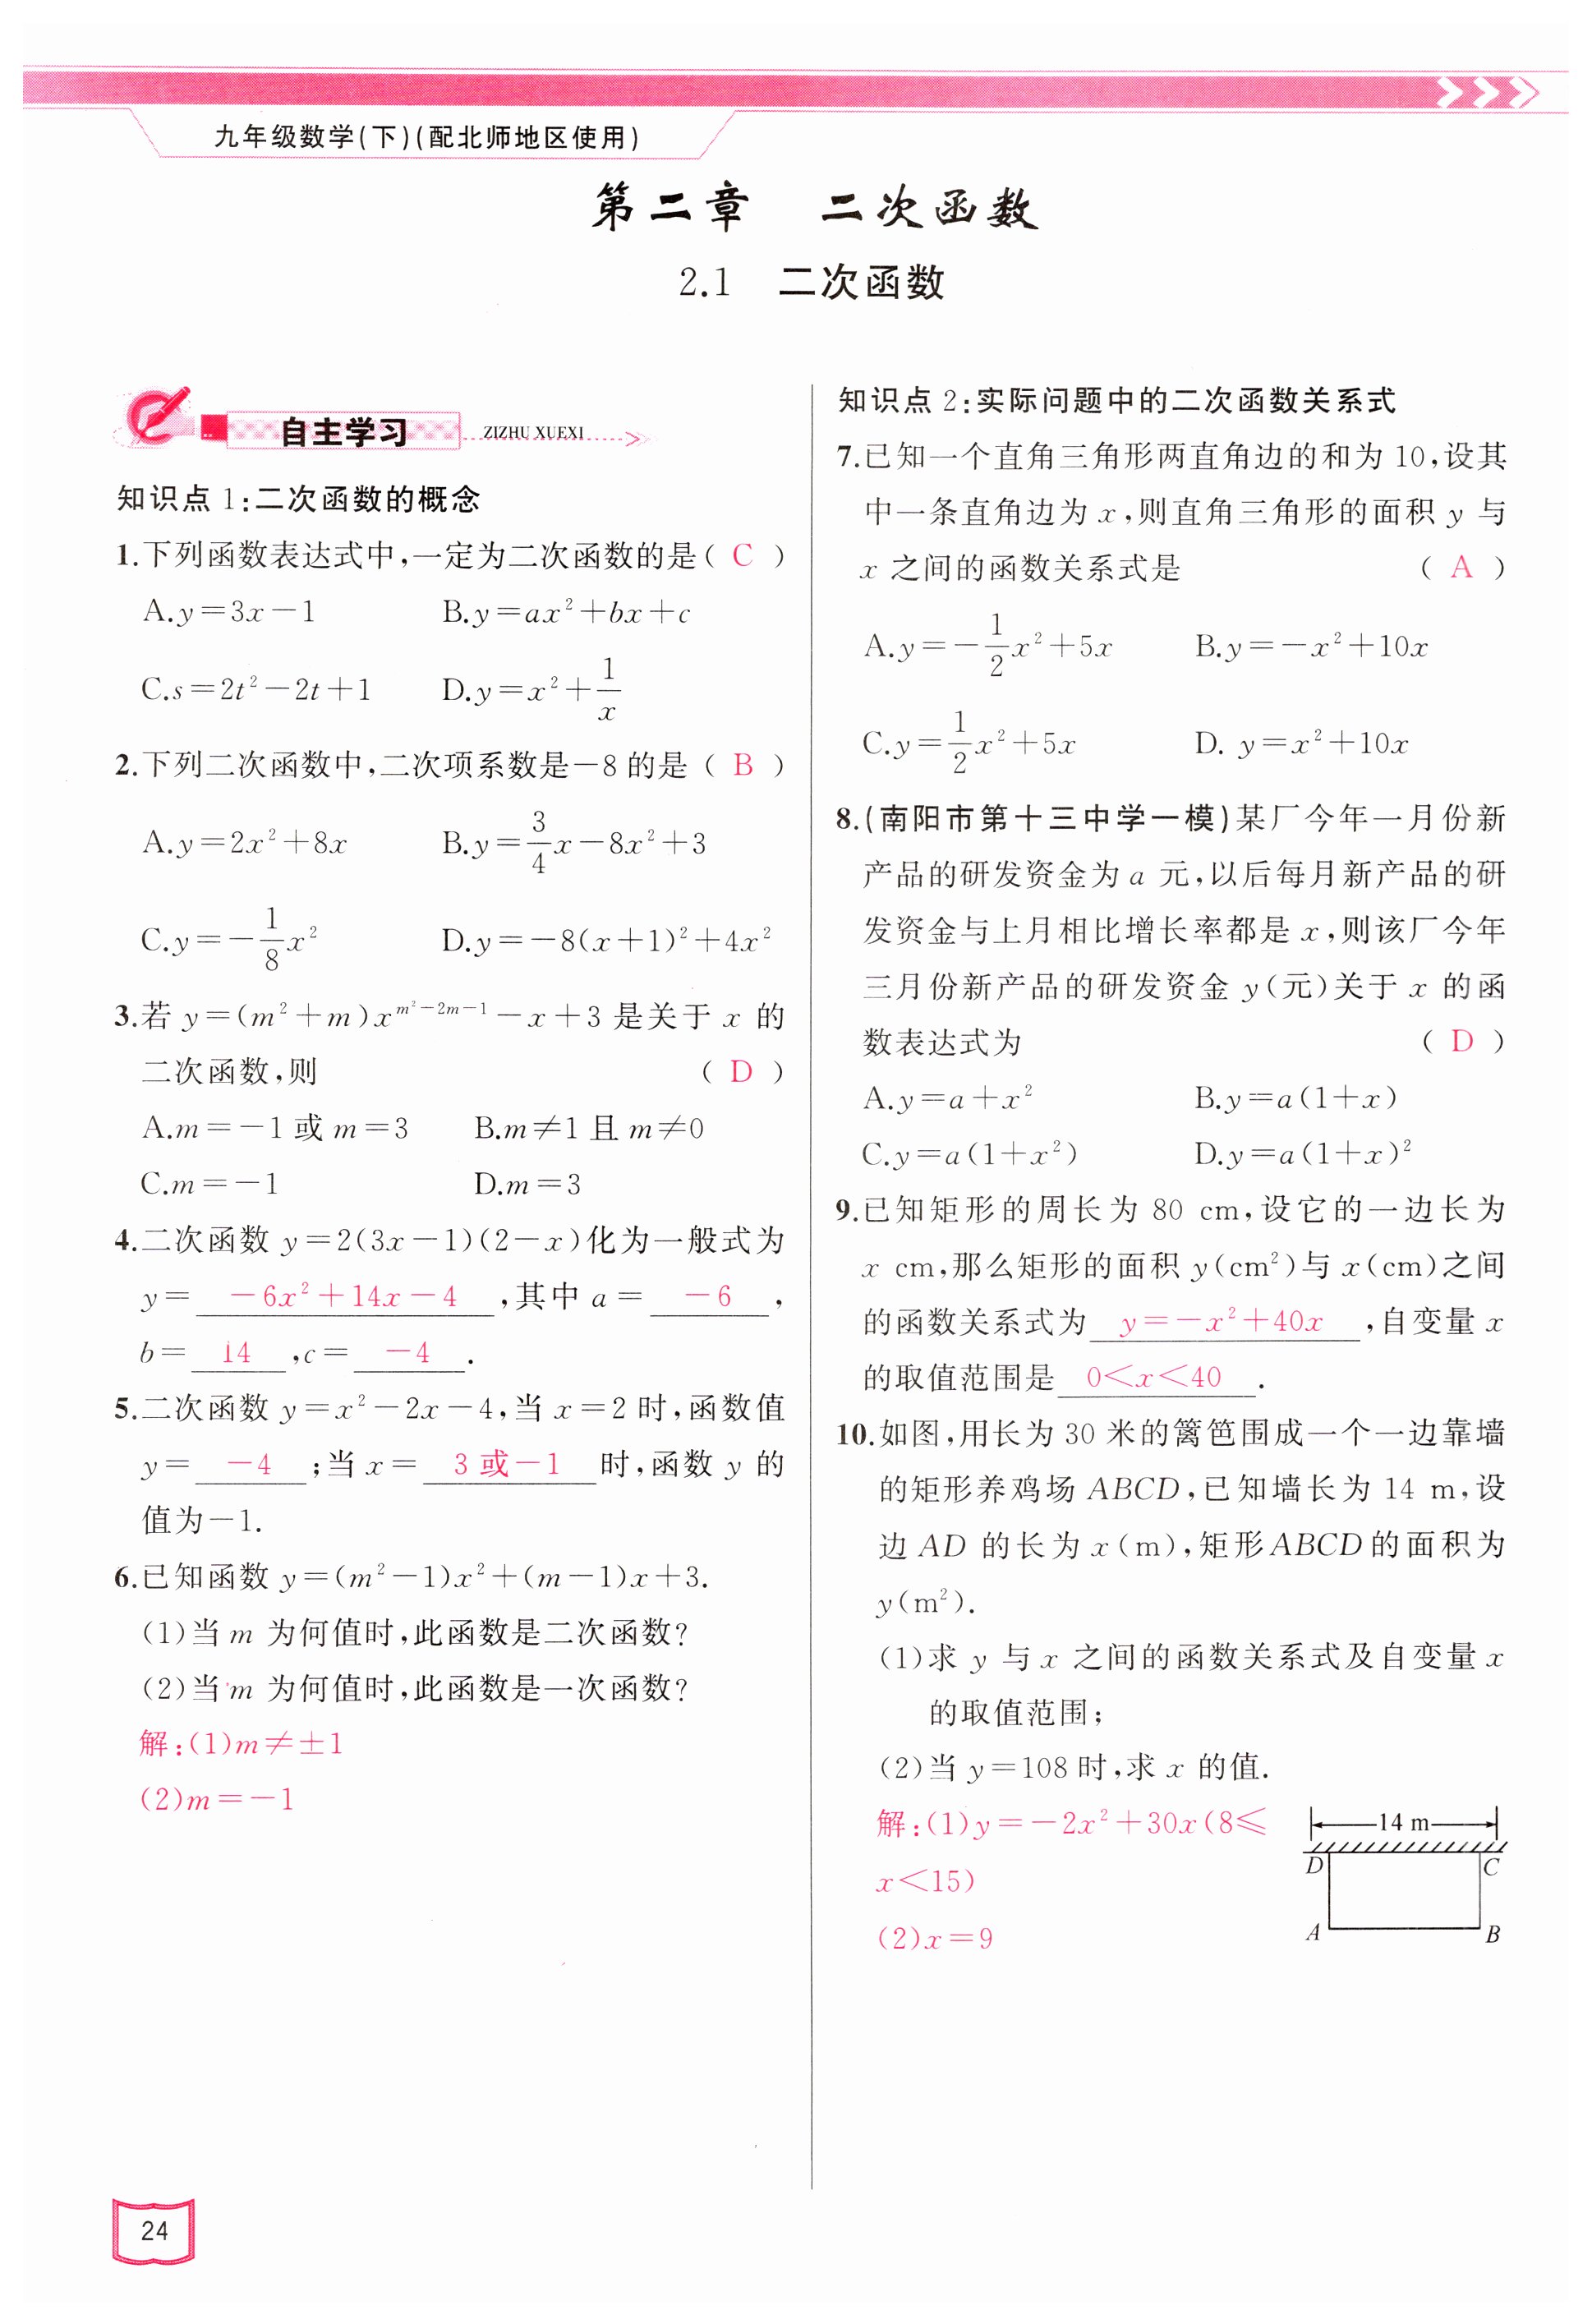 九年级数学(下)(配北师地区使用)
第二章 二次函数
2.1 二次函数
自主学习 ZIZHU XUEXI
知识点 1:二次函数的概念
1.下列函数表达式中,一定为二次函数的是( C )
A.y=3x-1 B.y=ax²+bx+c
C.s=2t²-2t+1 D.y=x²+1/x
2.下列二次函数中,二次项系数是-8 的是( B )
A.y=2x²+8x B.y=3/4x-8x²+3
C.y=-1/8x² D.y=-8(x+1)²+4x²
3.若 y=(m²+m)x^(m²-2m-1)-x+3 是关于 x 的
二次函数,则 ( D )
A.m=-1 或 m=3 B.m≠1 且 m≠0
C.m=-1 D.m=3
4.二次函数 y=2(3x-1)(2-x)化为一般式为
y= -6x²+14x-4 ,其中 a= -6 ,
b= 14 ,c= -4 .
5.二次函数 y=x²-2x-4,当 x=2 时,函数值
y= -4 ;当 x= 3 或-1 时,函数 y 的
值为-1.
6.已知函数 y=(m²-1)x²+(m-1)x+3.
(1)当 m 为何值时,此函数是二次函数?
(2)当 m 为何值时,此函数是一次函数?
解:(1)m≠±1
(2)m=-1
24
知识点 2:实际问题中的二次函数关系式
7.已知一个直角三角形两直角边的和为 10,设其
中一条直角边为 x,则直角三角形的面积 y 与
x 之间的函数关系式是 ( A )
A.y=-1/2x²+5x B.y=-x²+10x
C.y=1/2x²+5x D. y=x²+10x
8.(南阳市第十三中学一模)某厂今年一月份新
产品的研发资金为 a 元,以后每月新产品的研
发资金与上月相比增长率都是 x,则该厂今年
三月份新产品的研发资金 y(元)关于 x 的函
数表达式为 ( D )
A.y=a+x² B.y=a(1+x)
C.y=a(1+x²) D.y=a(1+x)²
9.已知矩形的周长为 80 cm,设它的一边长为
x cm,那么矩形的面积 y(cm²)与 x(cm)之间
的函数关系式为 y=-x²+40x ,自变量 x
的取值范围是 0<x<40 .
10.如图,用长为 30 米的篱笆围成一个一边靠墙
的矩形养鸡场 ABCD,已知墙长为 14 m,设
边 AD 的长为 x(m),矩形ABCD的面积为
y(m²).
(1)求 y 与 x 之间的函数关系式及自变量 x
的取值范围;
(2)当 y=108 时,求 x 的值.
解:(1)y=-2x²+30x(8≤
x<15)
(2)x=9
14 m
D C
A B